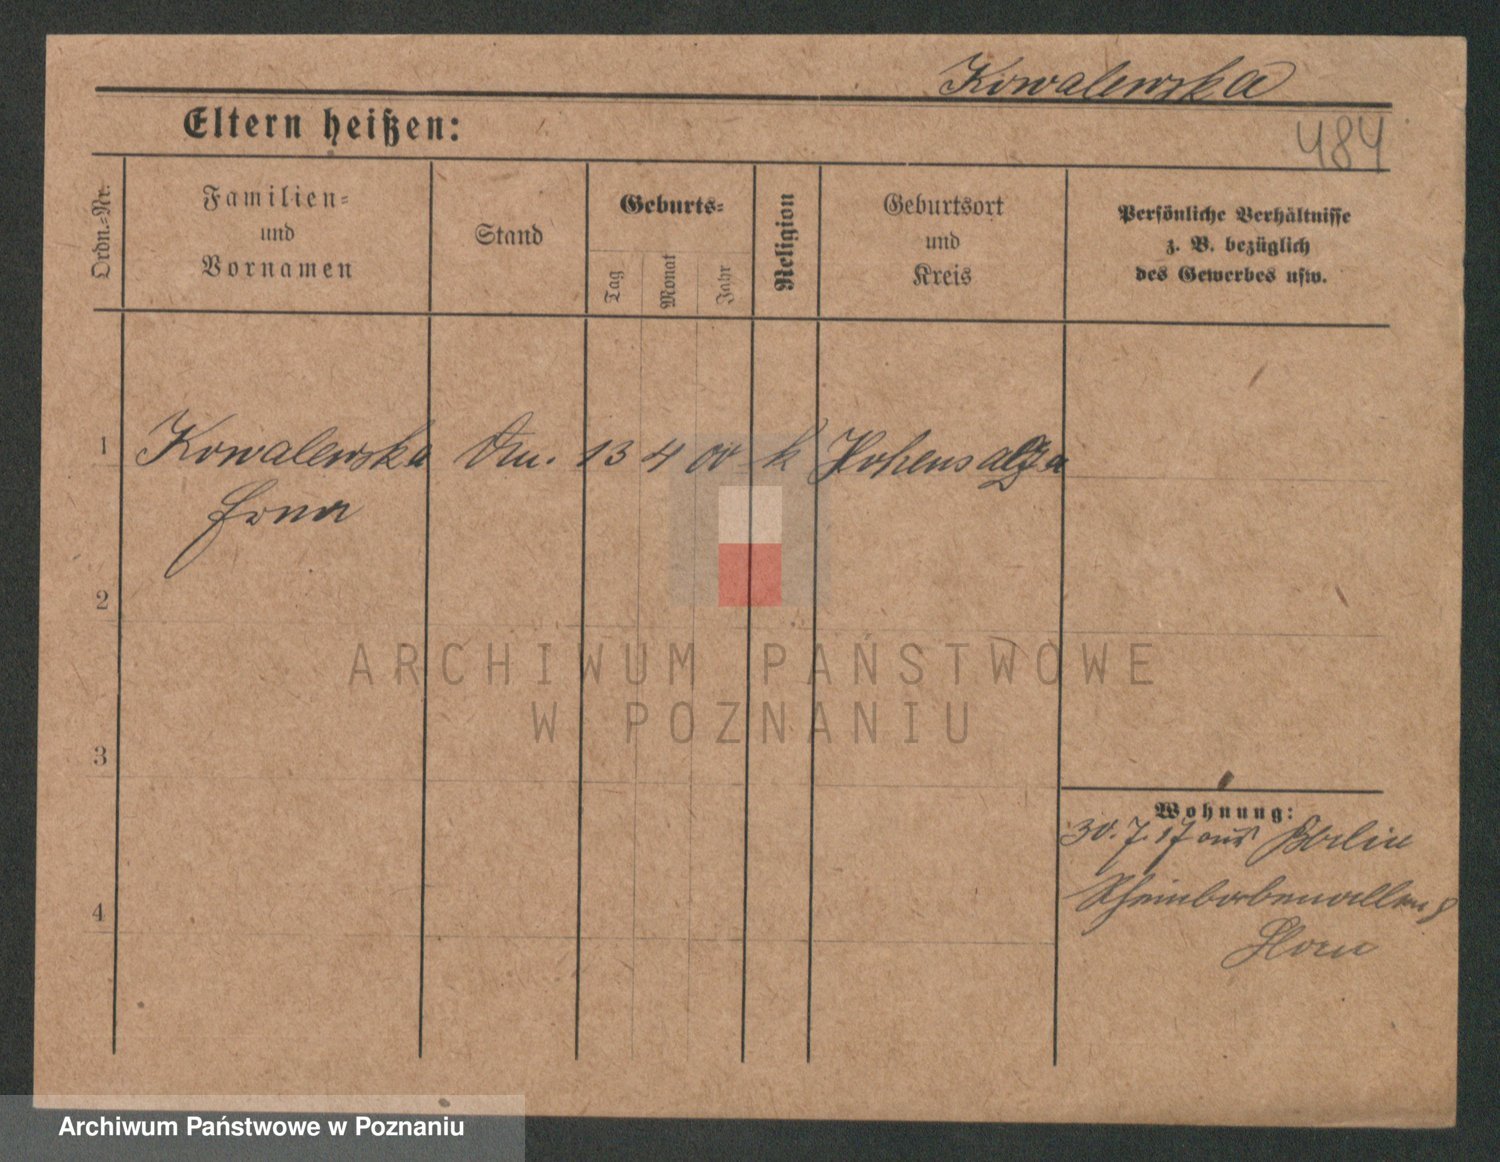 Kowalewska
Eltern heißen:
484
Ordn.-Nr.
Familien-
und
Vornamen
Stand
Geburts-
Tag
Monat
Jahr
Religion
Geburtsort
und
Kreis
Persönliche Verhältnisse
z. B. bezüglich
des Gewerbes usw.
1
Kowalewska
13 4 00 k Hohensalza
2
ARCHIWUM PAŃSTWOWE
W POZNANIU
3
Wohnung:
30.7.17 aus Berlin
4
Archiwum Państwowe w Poznaniu